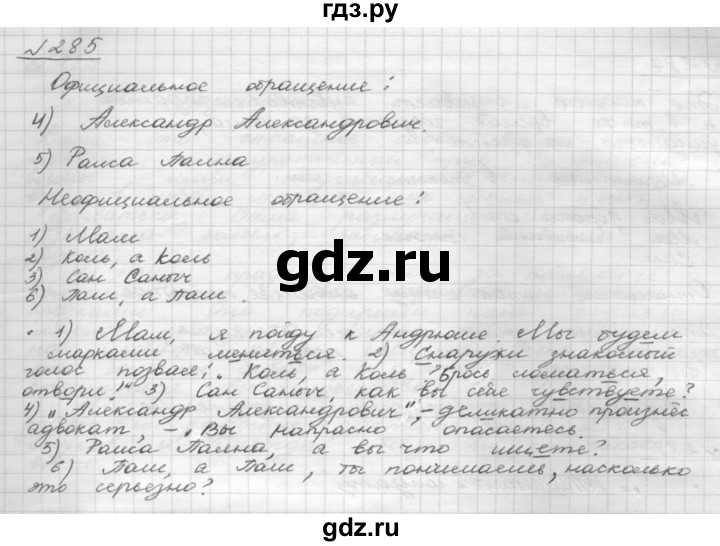 гдз.ру
№285
Официальное обращение:
4) Александр Александрович.
5) Раиса Пална
Неофициальное обращение:
1) Мам
2) Коль, а Коль
3) Сан Саныч
6) Паш, а Паш.
• 1) Мам, я пойду к Андрюше. Мы будем
марками меняться. 2) Снаружи знакомый
голос позвал: „Коль, а Коль! Брось ломаться,
отвори!" 3) Сан Саныч, как вы себе чувствуете?
4) „Александр Александрович", – деликатно произнёс
адвокат, – „Вы напрасно опасаетесь.
5) Раиса Пална, а вы что ищете?
6) Паш, а Паш, ты понимаешь, насколько
это серьезно?
gdz.ru
gdz.ru